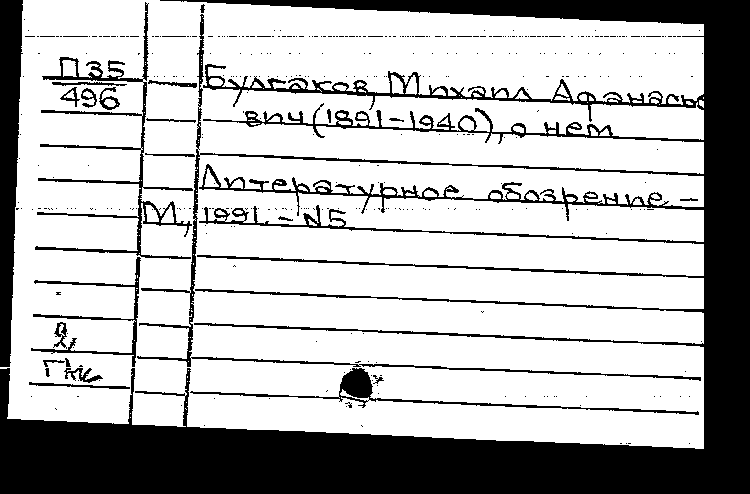 П35
496
Булгаков, Михаил Афанасье
вич (1891-1940), о нем
Литературное обозрение -
М., 1991. - N5